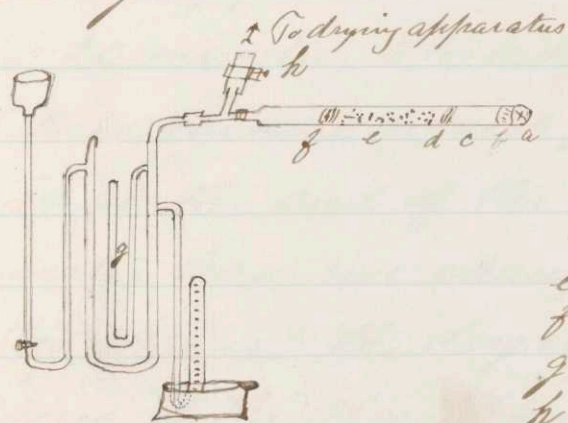 To drying apparatus
h
f e d c b a
g
e
f
g
h